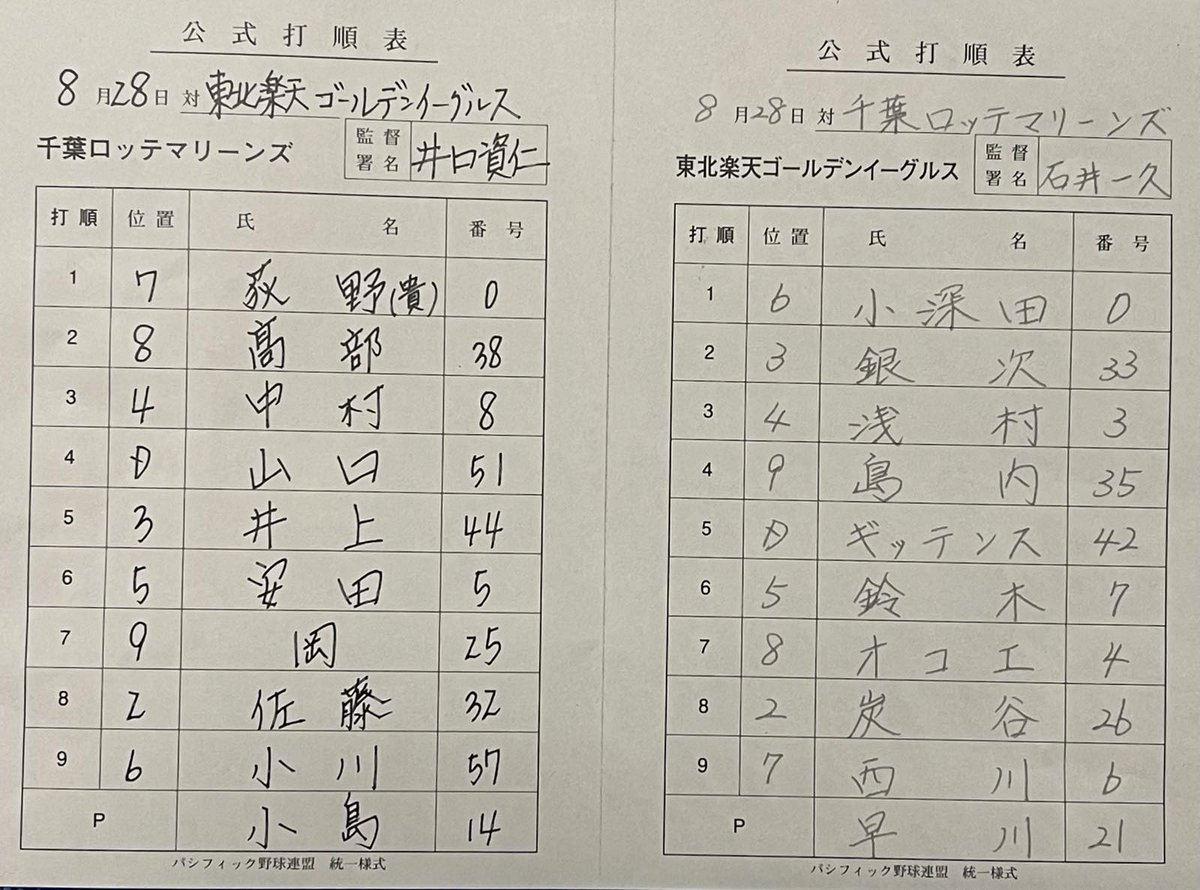 公式打順表
8月28日 対 東北楽天ゴールデンイーグルス
千葉ロッテマリーンズ 監督署名 井口資仁
打順 位置 氏名 番号
1 7 荻野(貴) 0
2 8 髙部 38
3 4 中村 8
4 D 山口 51
5 3 井上 44
6 5 安田 5
7 9 岡 25
8 2 佐藤 32
9 6 小川 57
P 小島 14
パシフィック野球連盟 統一様式
公式打順表
8月28日 対 千葉ロッテマリーンズ
東北楽天ゴールデンイーグルス 監督署名 石井一久
打順 位置 氏名 番号
1 6 小深田 0
2 3 銀次 33
3 4 浅村 3
4 9 島内 35
5 D ギッテンス 42
6 5 鈴木 7
7 8 オコエ 4
8 2 炭谷 26
9 7 西川 6
P 早川 21
パシフィック野球連盟 統一様式